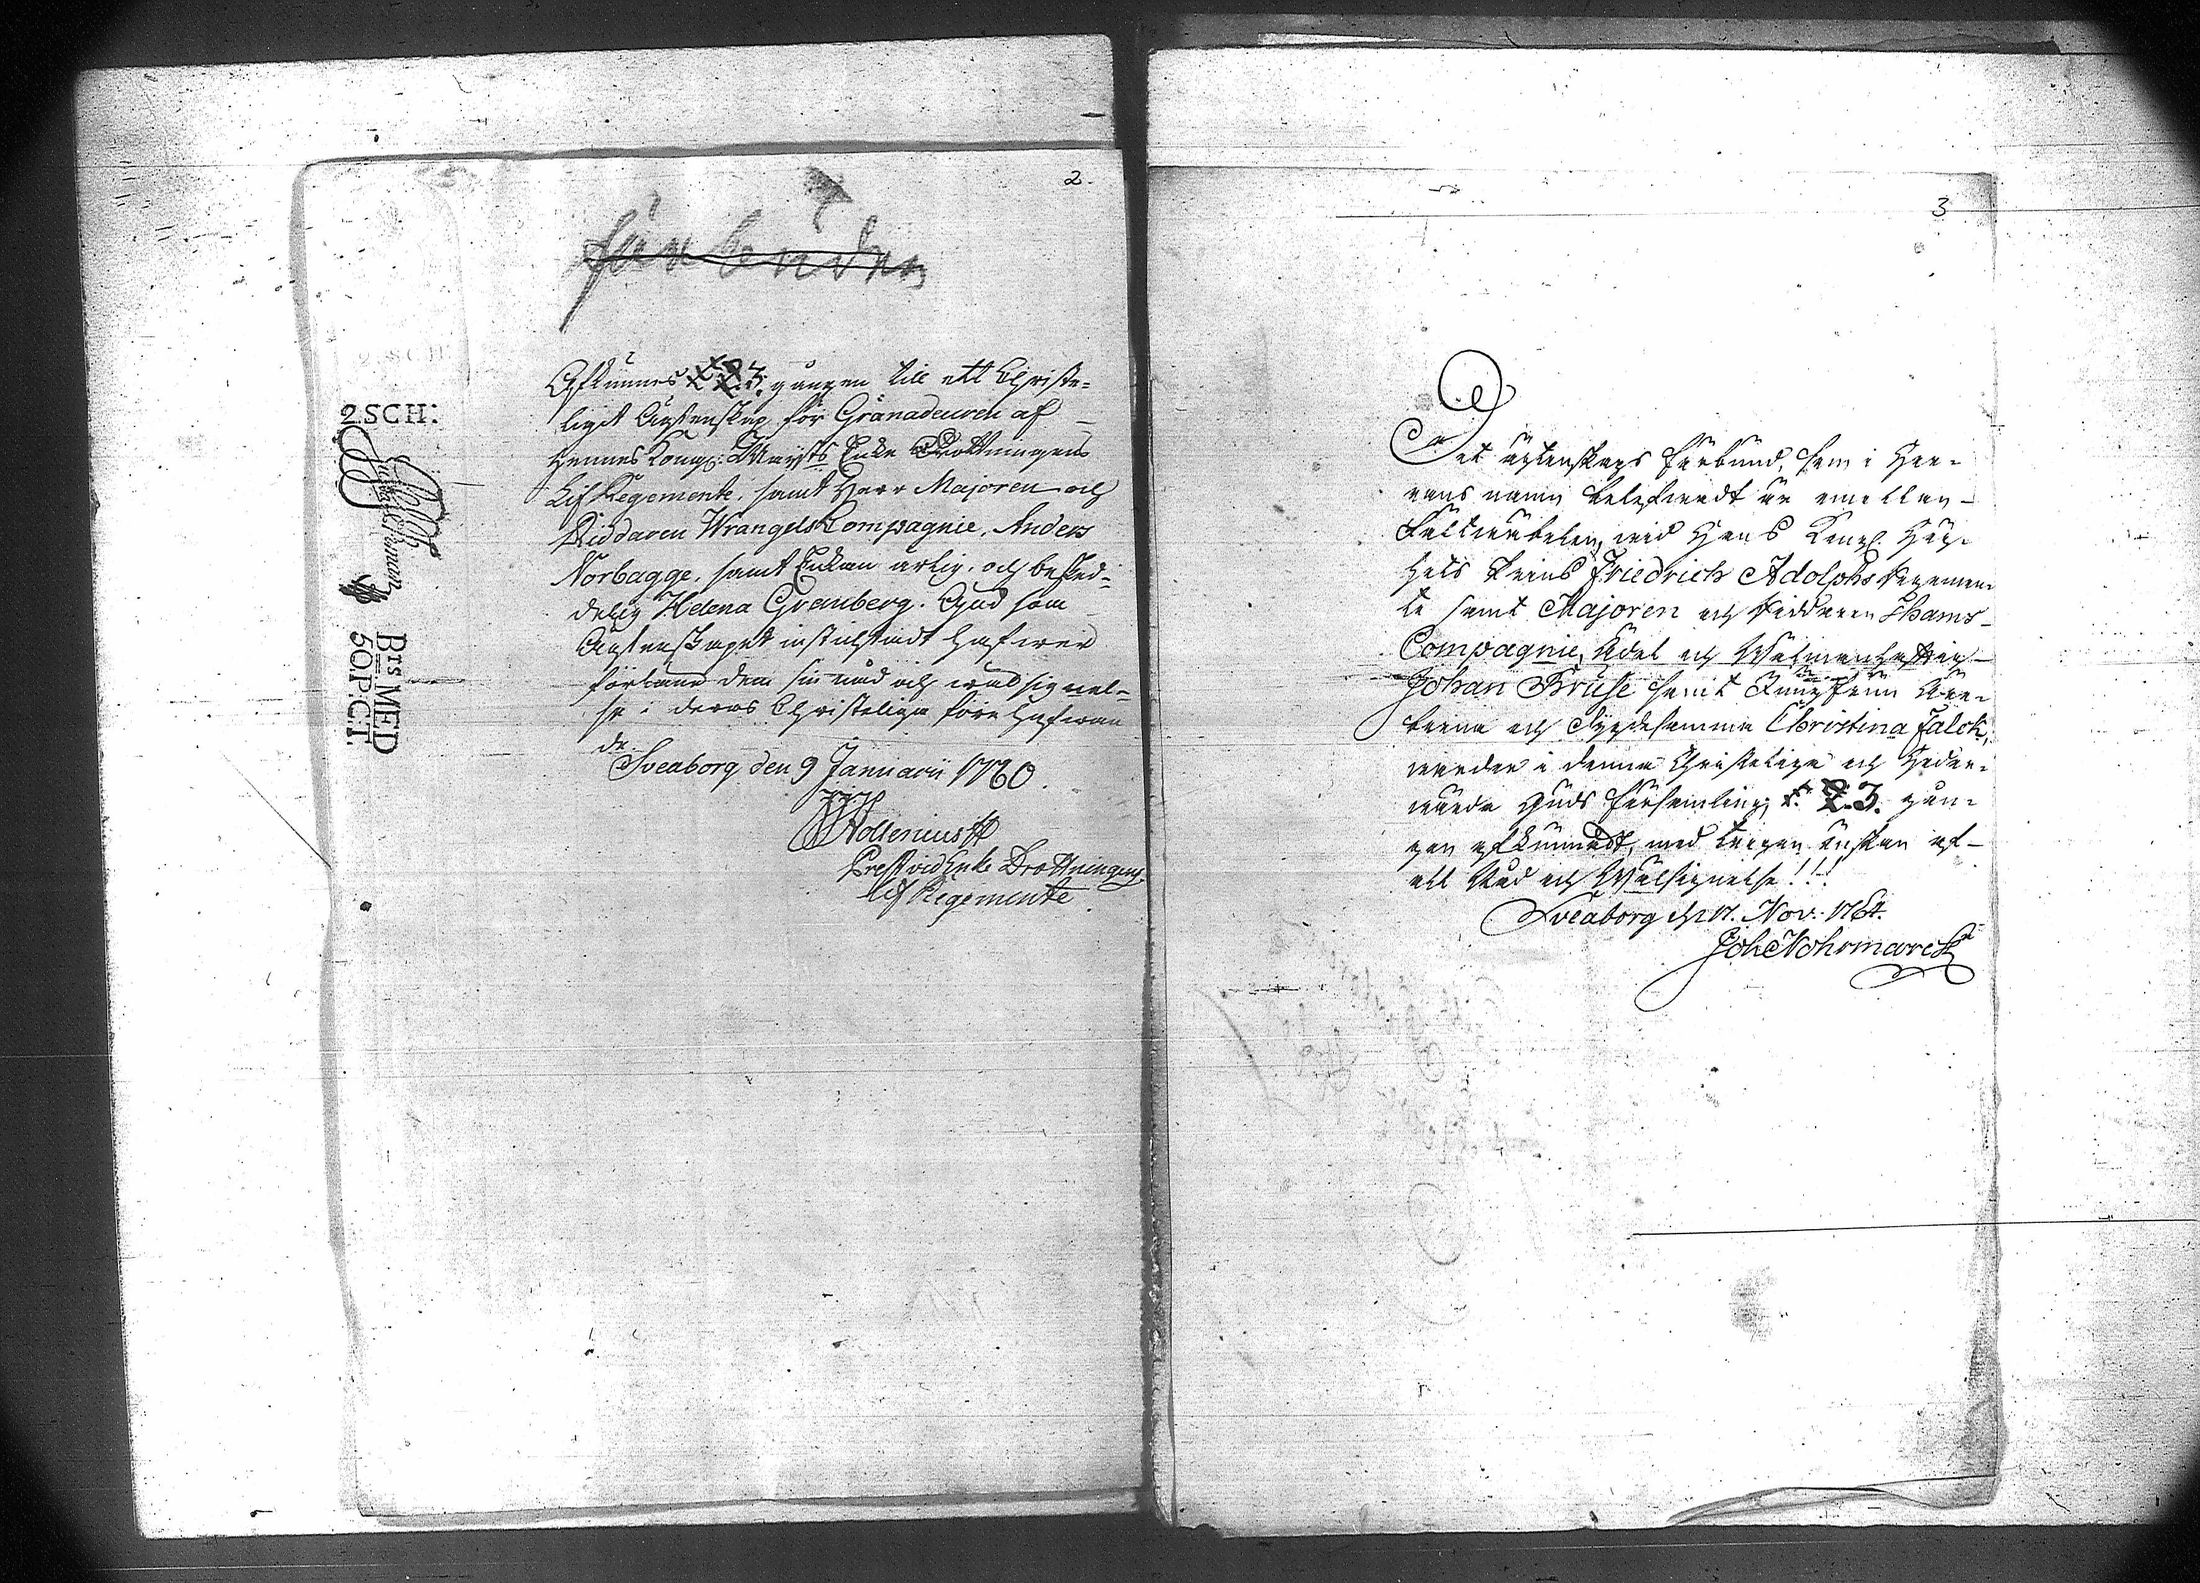 2.
förbunden
2.SCH:
Brs MED
50.P.C.T.
Aflÿsnes 1. 2. 3. gången till ett Christe-
ligit Ägtenskap för Granadeuren af
Hennes Kongl: Maÿsts Enke Drottningens
Lif Regemente, samt Herr Majoren och
Riddaren Wrangels Compagnie, Anders
Norbagge, samt Enkan ärlig. och besked-
delig Helena Granberg. Gud som
Ägtenskapet instichtadt hafwer
förläne dem sin nåd och wälsignel-
se i deras Christeliga förehafwan
de.
Sveaborg den 9 Januarii 1760.
Prest vid Enke Drottningens
Lif Regemente
3
Det ägtenskaps förbund, som i Her-
rans namn belefwadt är emellan
Fältwäbelen wid Hans Kongl. Hög-
hets Prins Friedrich Adolphs Regemen-
te samt Majoren och Riddaren Thams
Compagnie, Ädel och Wälmanhaftig
Johan Bruse samt Jungfrun Ähre-
borna och Dygdesamma Christina Falck,
warder i denna Christeliga och Heder-
wärda Guds församling, 1. 2. 3. gån-
gen afkunnadt, med trogen önskan af
all Nåd och Wälsignelse!!!
Sveaborg d. 17. Nov: 1764.
Joh: Mohrmarck